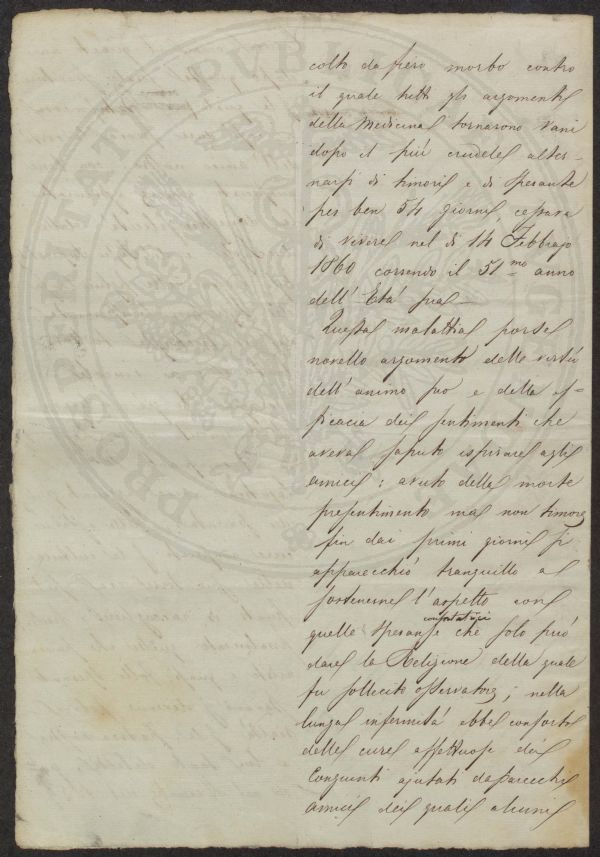 colto da fiero morbo contro
il quale tutti gli argomenti
della Medicina tornarono vani
dopo il più crudele alter-
narsi di timori e di speranze
per ben 54 giorni, cessava
di vivere nel dì 14 Febbrajo
1860 correndo il 51.mo anno
dell' Età sua —
Questa malattia porse
novello argomento delle virtù
dell' animo suo e della ef-
ficacia dei sentimenti che
aveva saputo ispirare agli
amici: avuto della morte
presentimento ma non timore
fin dai primi giorni si
apparecchiò tranquillo a
sostenerne l'aspetto con
confortatrici
quelle speranze che solo può
dare la Religione della quale
fu sollecito osservatore; nella
lunga infermità ebbe conforto
delle cure affettuose dei
Congiunti ajutati da parecchi
amici dei quali alcuni